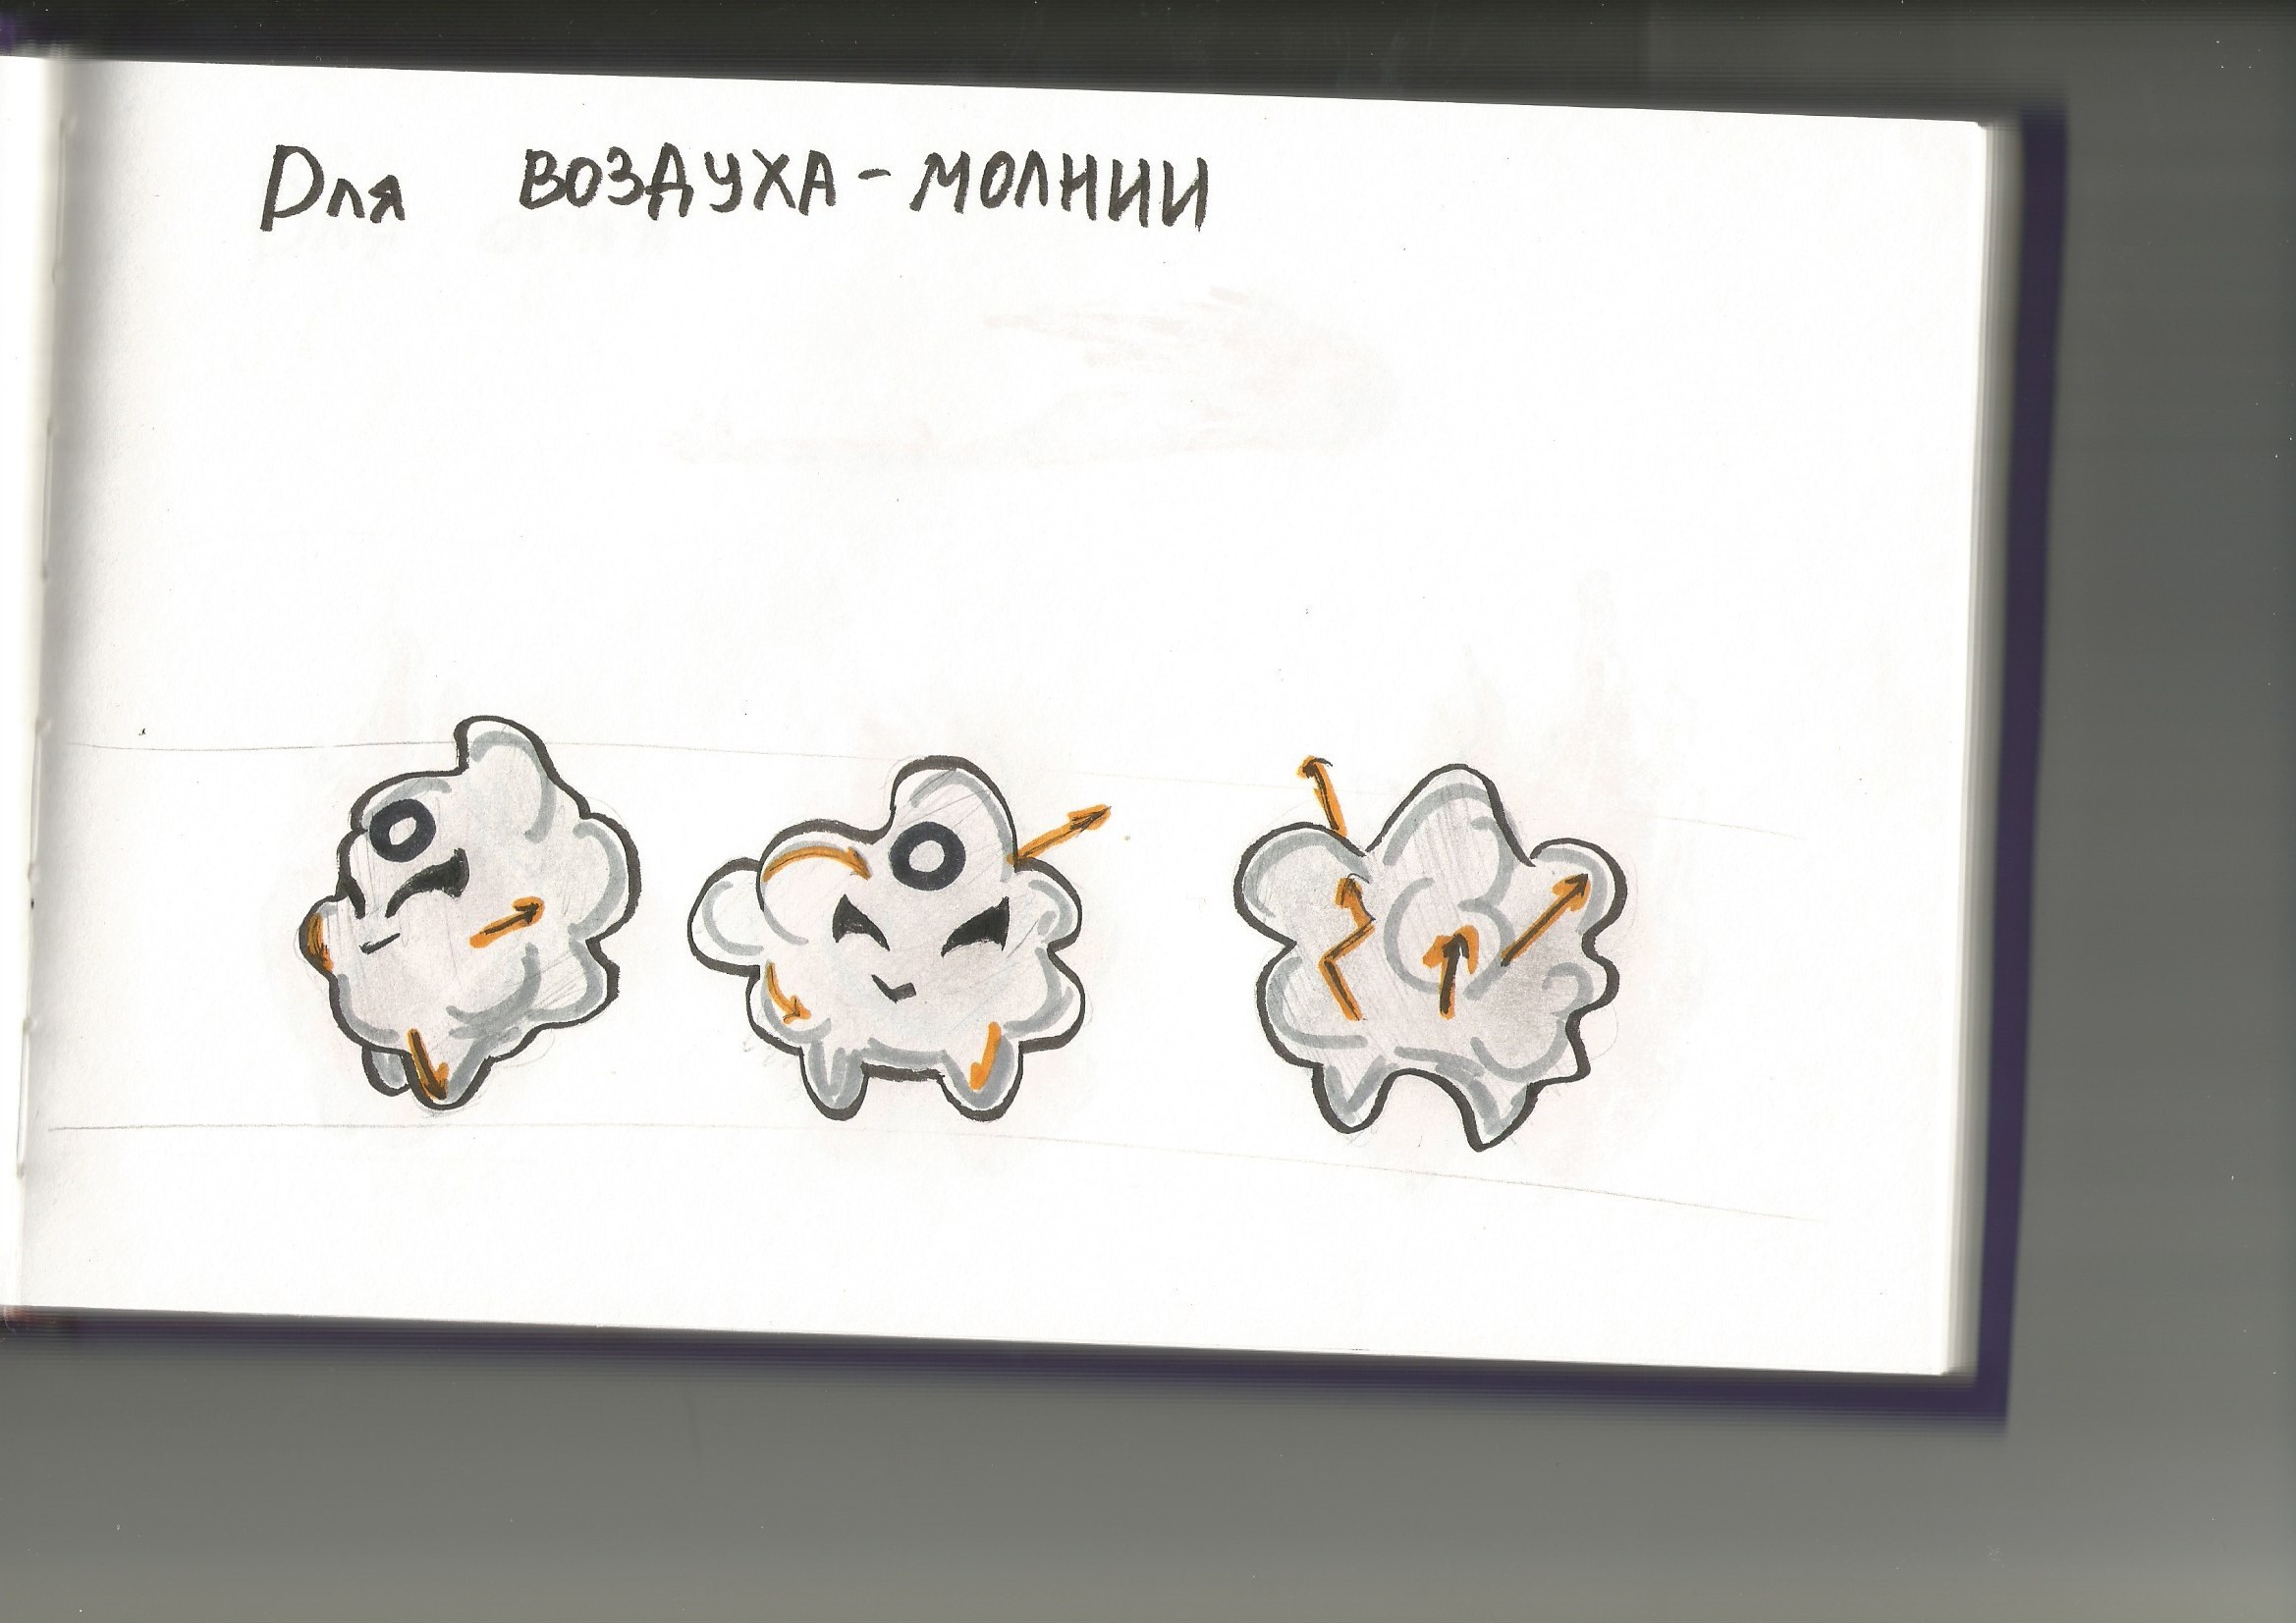 Для ВОЗДУХА-МОЛНИИ